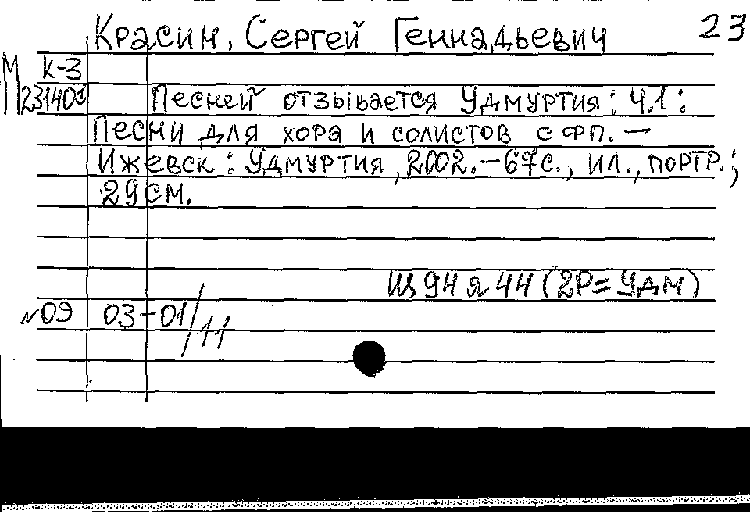 23
Красин, Сергей Геннадьевич
М К-3
231400
Песней отзывается Удмуртия: Ч.1:
Песни для хора и солистов с фп. —
Ижевск: Удмуртия, 2002. — 67с., ил., портр.;
29см.
Щ 94 я 44 (2Р=Удм)
№09 03-01/11